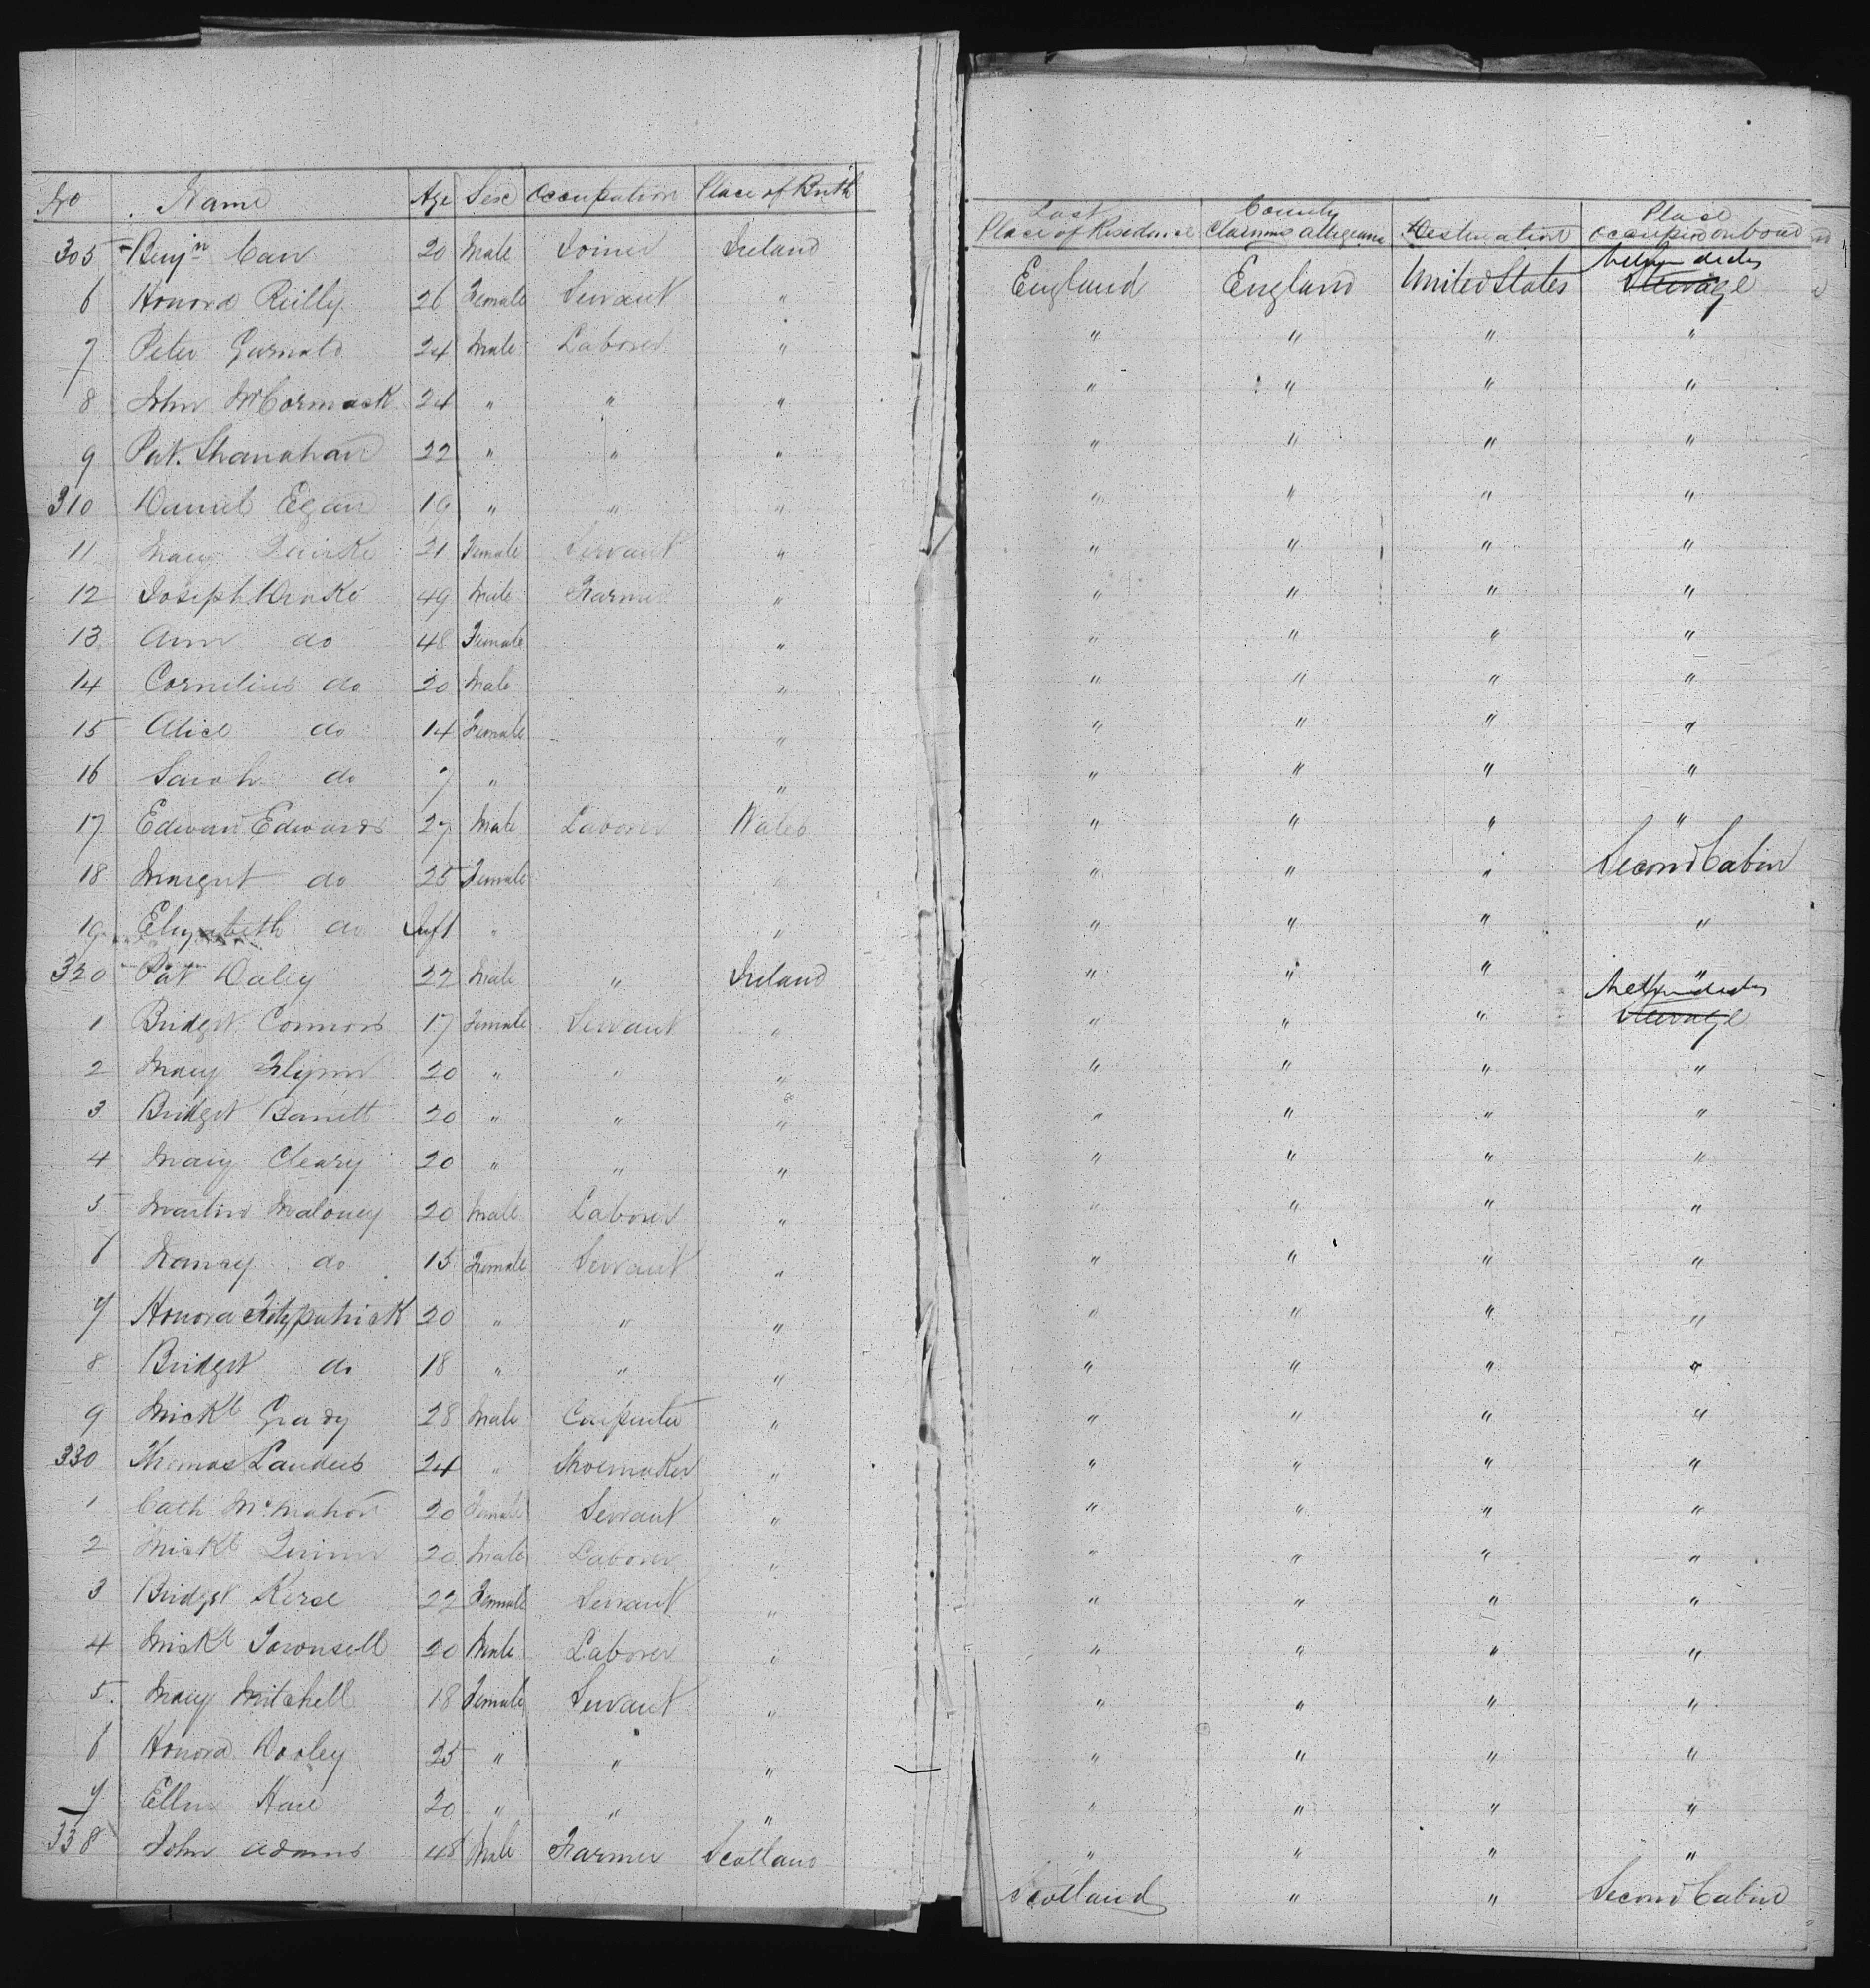 No Name Age Sex Occupation Place of Birth
305 Benjn Carr 20 Male Joiner Ireland
6 Honora Reilly 26 Female Servant "
7 Peter 24 Male Laborer "
8 John McCormack 24 " " "
9 Pat. Shanahan 22 " " "
310 Daniel Egan 19 " " "
11 Mary Quirke 21 Female Servant "
12 Joseph Drake 49 Male Farmer "
13 Ann do 48 Female "
14 Cornelius do 20 Male "
15 Alice do 14 Female "
16 Sarah do 7 " "
17 Edward Edwards 27 Male Laborer Wales
18 Margrt do 25 Female "
19 Elizabeth do Inft " "
320 Pat Daley 22 Male " Ireland
1 Bridget Connors 17 Female Servant "
2 Mary Flynn 20 " " "
3 Bridget Barrett 20 " " "
4 Mary Cleary 20 " " "
5 Martin Maloney 20 Male Laborer "
6 Nancy do 15 Female Servant "
7 Honora Fitzpatrick 20 " " "
8 Bridget do 18 " " "
9 Mickl Grady 28 Male Carpenter "
330 Thomas Landers 24 " Shoemaker "
1 Cath McMahon 20 Female Servant "
2 Mickl Quinn 20 Male Laborer "
3 Bridget Kerse 22 Female Servant "
4 Mickl Townsell 20 Male Laborer "
5 Mary Mitchell 18 Female Servant "
6 Honora Dooley 25 " " "
7 Ellen Hare 20 " " "
338 John Adams 48 Male Farmer Scotland
Last Place of Residence County Claiming Allegiance Destination Place occupied on board
England England United States Steerage
" " " "
" " " "
" " " "
" " " "
" " " "
" " " "
" " " "
" " " "
" " " "
" " " "
" " " "
" " " Second Cabin
" " " "
" " " "
" " " Steerage
" " " "
" " " "
" " " "
" " " "
" " " "
" " " "
" " " "
" " " "
" " " "
" " " "
" " " "
" " " "
" " " "
" " " "
" " " "
" " " "
" " " "
Scotland " " Second Cabin